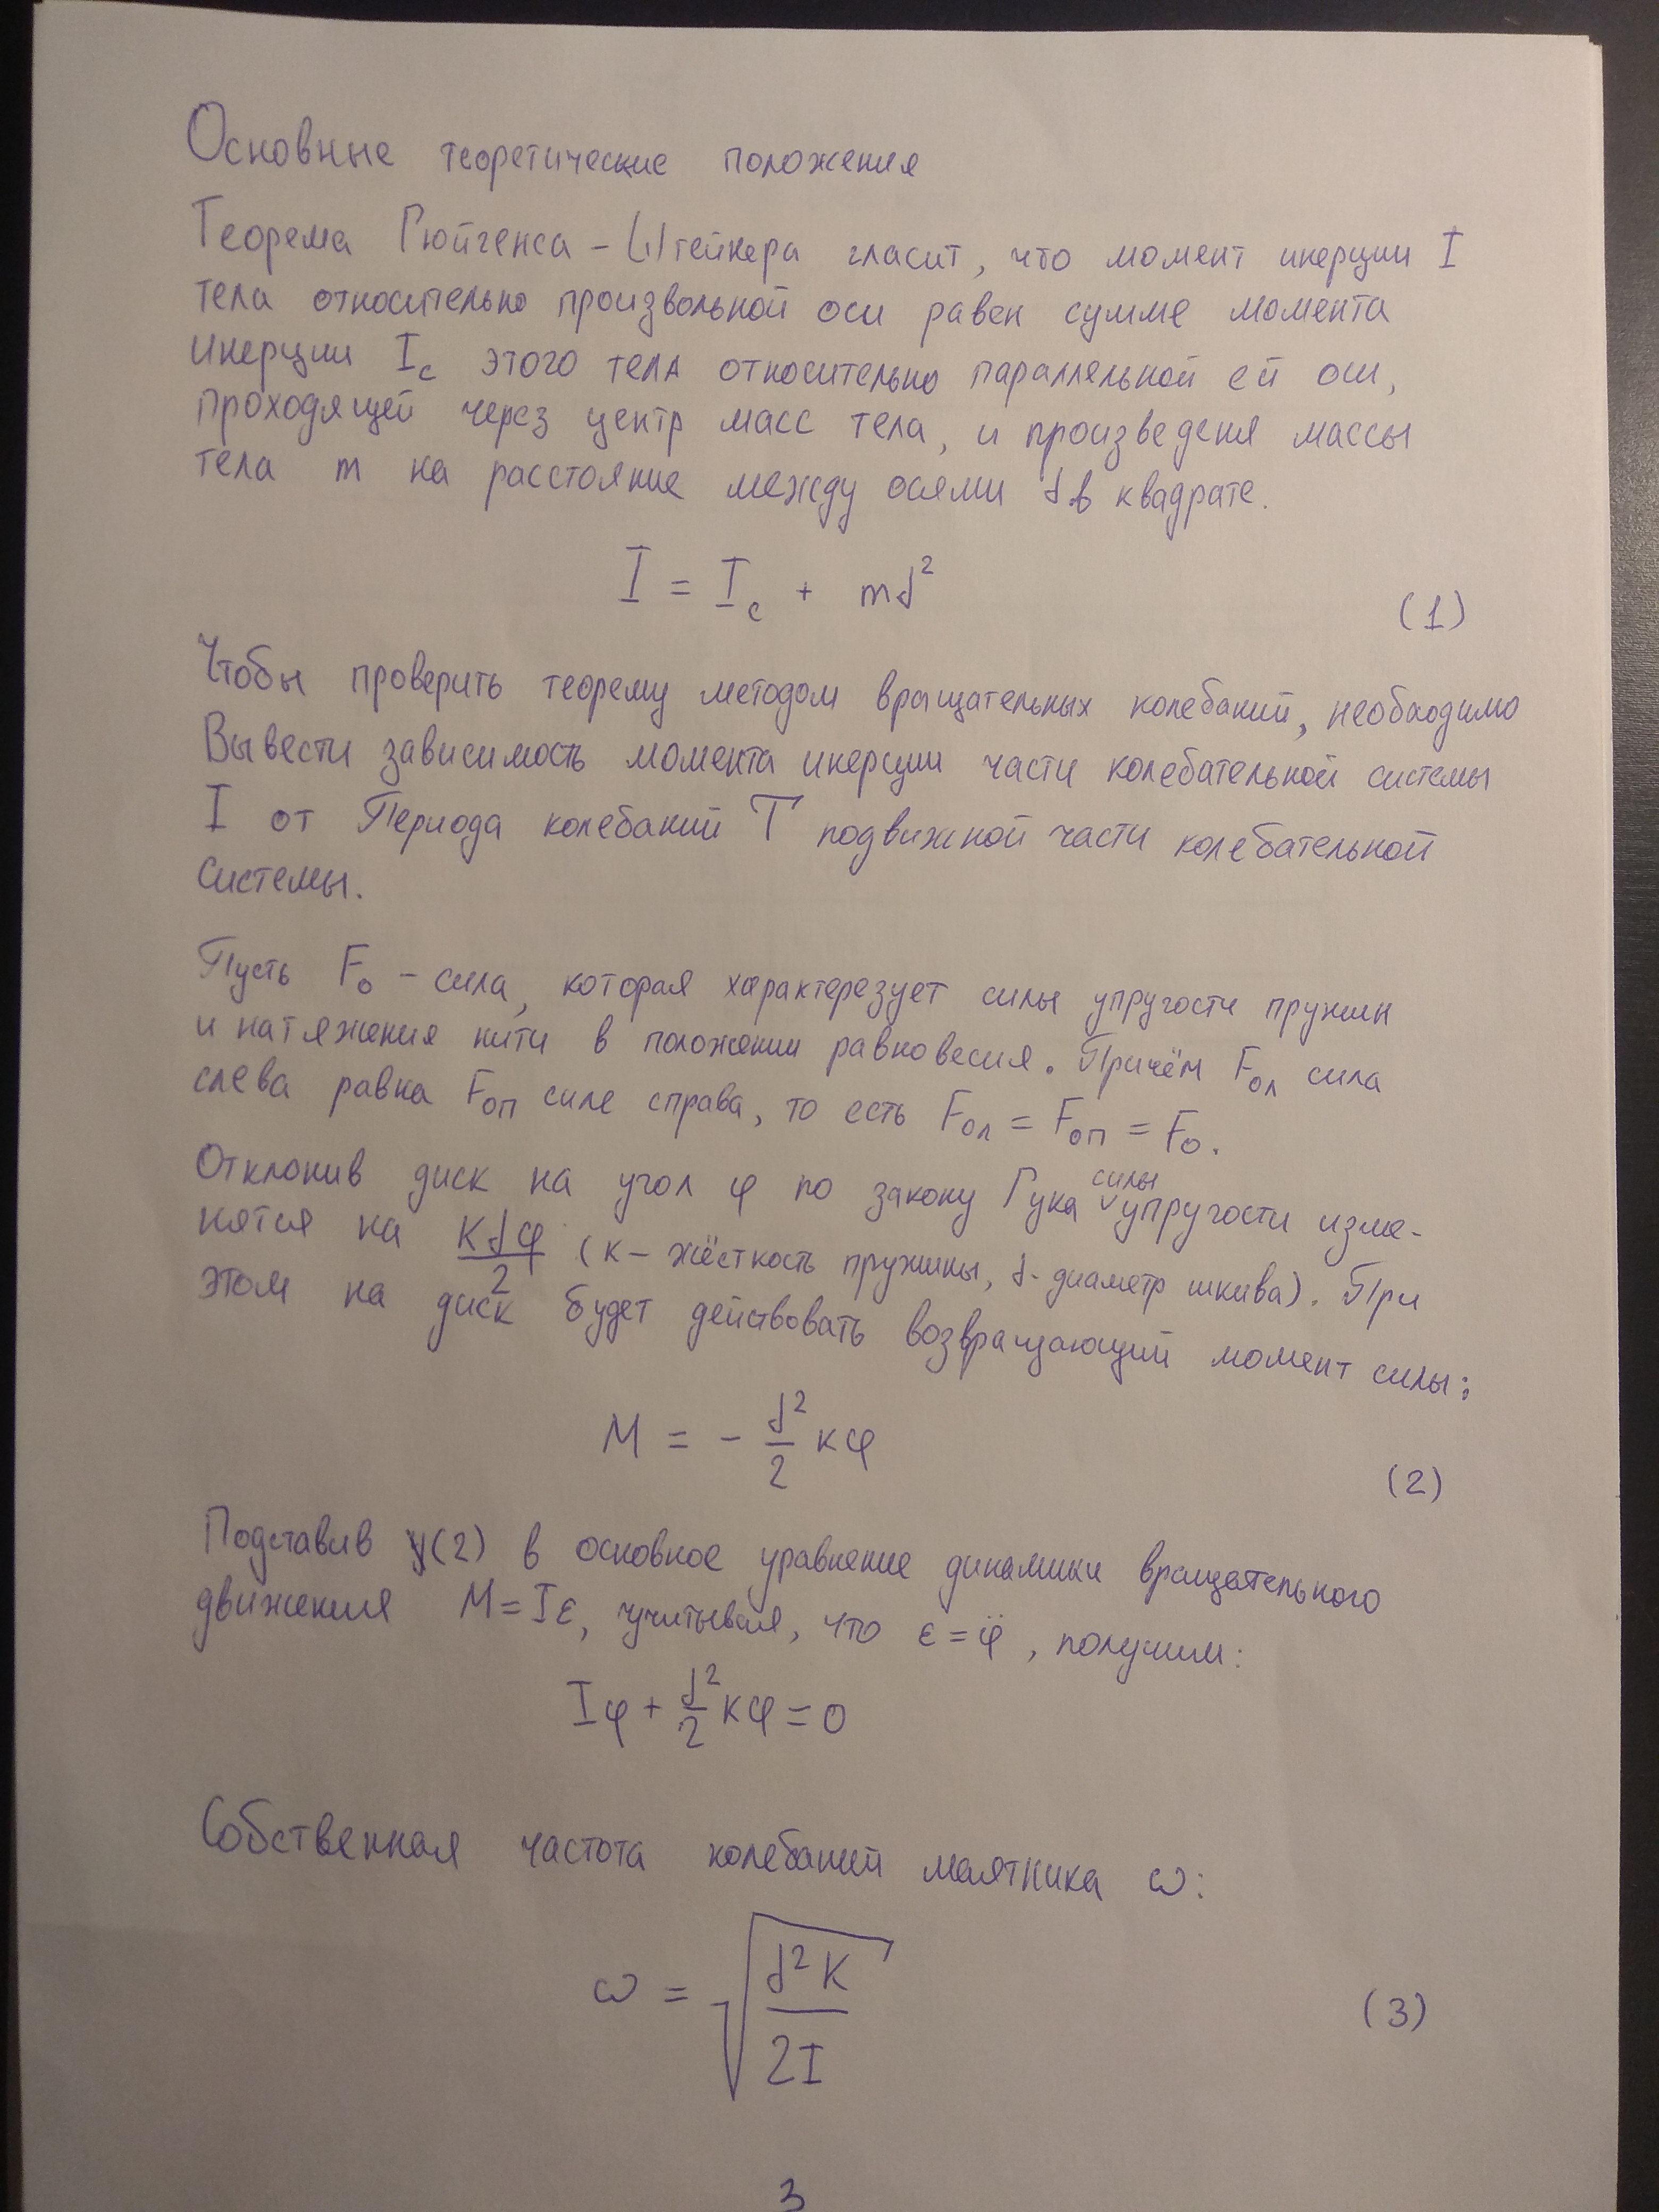 Основные теоретические положения
Теорема Гюйгенса - Штейнера гласит, что момент инерции I
тела относительно произвольной оси равен сумме момента
инерции I_c этого тела относительно параллельной ей оси,
проходящей через центр масс тела, и произведеня массы
тела m на расстояние между осями d в квадрате.
I = I_c + md²
(1)
Чтобы проверить теорему методом вращательных колебаний, необходимо
вывести зависимость момента инерции части колебательной системы
I от периода колебаний T подвижной части колебательной
системы.
Пусть F₀ - сила, которая характерезует силы упругости пружин
и натяжения нити в положении равновесия. Причём F₀л сила
слева равна F₀п силе справа, то есть F₀л = F₀п = F₀.
Отклонив диск на угол φ по закону Гука силы упругости изме-
нятся на kdφ/2 (k - жёсткость пружины, d - диаметр шкива). При
этом на диск будет действовать возвращающий момент силы:
M = - d²/2 kφ
(2)
Подставив (2) в основное уравнение динамики вращательного
движения M = Iε, учитывая, что ε = φ̈, получим:
Iφ + d²/2 kφ = 0
Собственная частота колебаний маятника ω:
ω = √(d²k/2I)
(3)
3